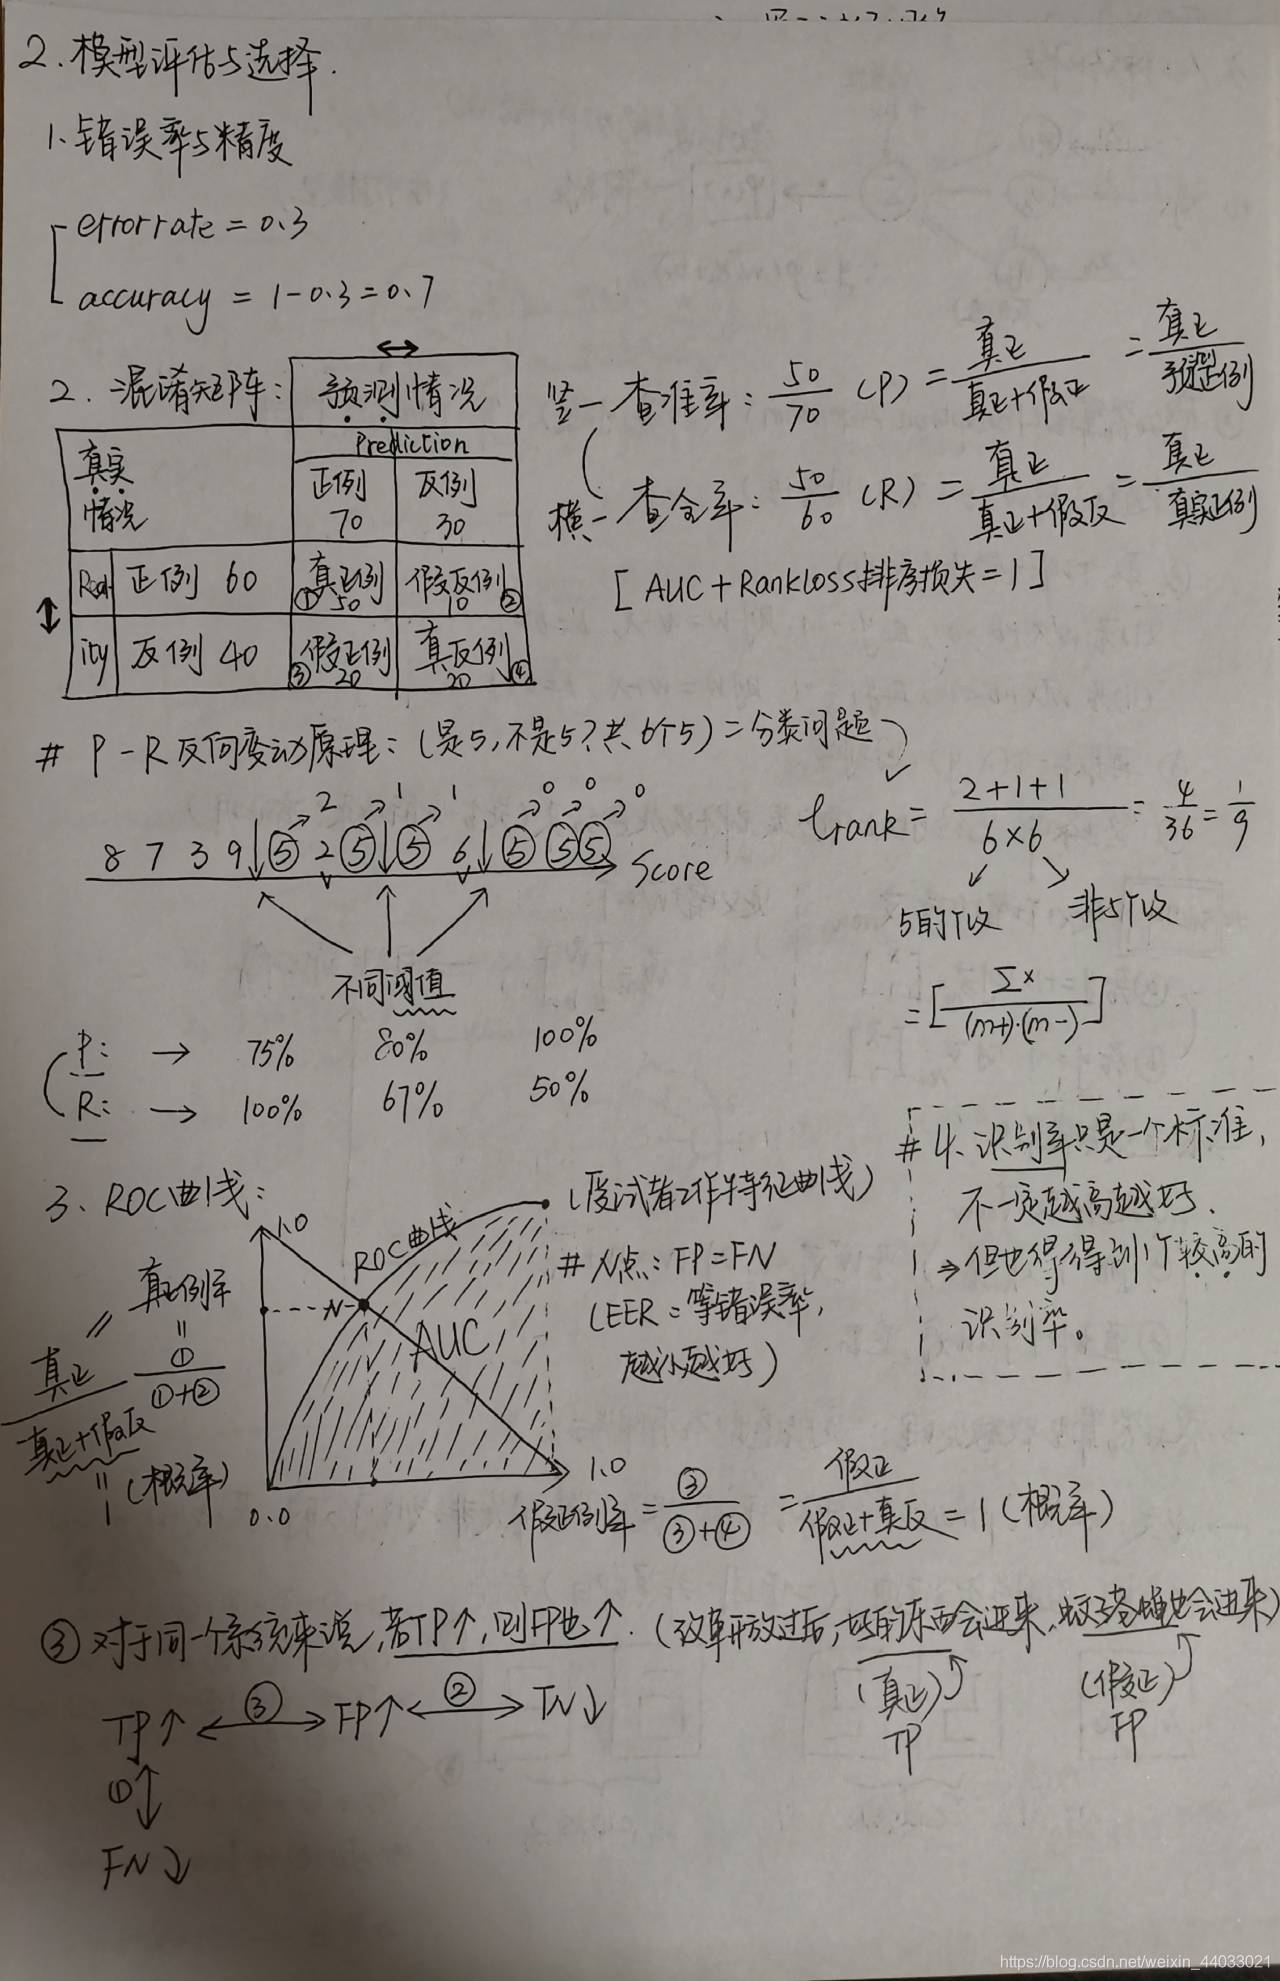 2.模型评估与选择.
1.错误率与精度
errorrate = 0.3
accuracy = 1-0.3=0.7
2. 混淆矩阵:
预测情况
Prediction
真实情况
正例 70
反例 30
Reality
正例 60
真正例 ① 50
假反例 10 ②
反例 40
假正例 ③ 20
真反例 20 ④
竖—查准率: 50/70 (P) = 真正/(真正+假正) = 真正/预测正例
横—查全率: 50/60 (R) = 真正/(真正+假反) = 真正/真实正例
[AUC+RankLoss排序损失=1]
# P-R反向变动原理:(是5,不是5?共6个5)=分类问题
2 1 1 0 0 0
8 7 3 9 ↓ ⑤ 2 ⑤ ↓ ⑤ 6 ↓ ⑤ ⑤ ⑤ Score
不同阈值
ℓrank = (2+1+1)/(6×6) = 4/36 = 1/9
5的个数 非5个数
= [Σx/((m+)·(m-))]
P: → 75% 80% 100%
R: → 100% 67% 50%
# 4、识别率只是一个标准,
不一定越高越好.
⇒但也得得到1个较高的
识别率。
3、ROC曲线:
(受试者工作特征曲线)
1.0
ROC曲线
N
AUC
# N点: FP=FN
(EER=等错误率,
越小越好)
真正例率
= ①/(①+②)
= 真正/(真正+假反)
= 1 (概率)
0.0
1.0
假正例率 = ③/(③+④) = 假正/(假正+真反) = 1(概率)
③ 对于同一个系统来说,若TP↑,则FP也↑. (改革开放过后,好的东西会进来,蚊子苍蝇也会进来)
(真正) TP
(假正) FP
TP↑ ←③→ FP↑ ←②→ TN↓
①↕
FN↓
https://blog.csdn.net/weixin_44033021